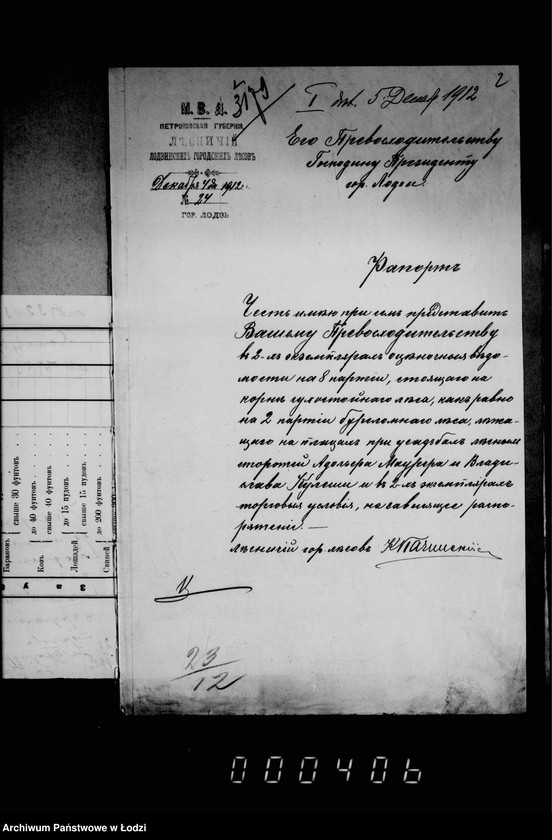 2
М. В. Д.
3179
I дѣл. 5 Декаб 1912
ПЕТРОКОВСКАЯ ГУБЕРНІЯ
ЛѢСНИЧІЙ
ЛОДЗИНСКИХЪ ГОРОДСКИХЪ ЛѢСОВЪ
Декабря 4 дня 1912 г.
№ 24
ГОР. ЛОДЗЬ
Его Превосходительству
Господину Президенту
гор. Лодзи.
Рапортъ
Честь имѣю при семъ представить
Вашему Превосходительству
въ 2-хъ экземплярахъ оцѣночныя вѣдо-
мости на 8 партій, стоящаго на
корнѣ сухостойнаго лѣса, какъ равно
на 2 партіи буреломнаго лѣса, лежа-
щаго на плацахъ при усадьбахъ лѣсныхъ
сторожей Адольфа Маурера и Влади-
слава Кулеши и въ 2-хъ экземплярахъ
торговыя условія, на зависящее распо-
ряженіе.—
Лѣсничій гор. лѣсовъ
23/12
Барановъ
свыше 30 фунтовъ
Козъ
до 40 фунтовъ
свыше 40 фунтовъ
Лошадей
до 15 пудовъ
свыше 15 пудовъ
Свиней
до 200 фунтовъ
000406
Archiwum Państwowe w Łodzi